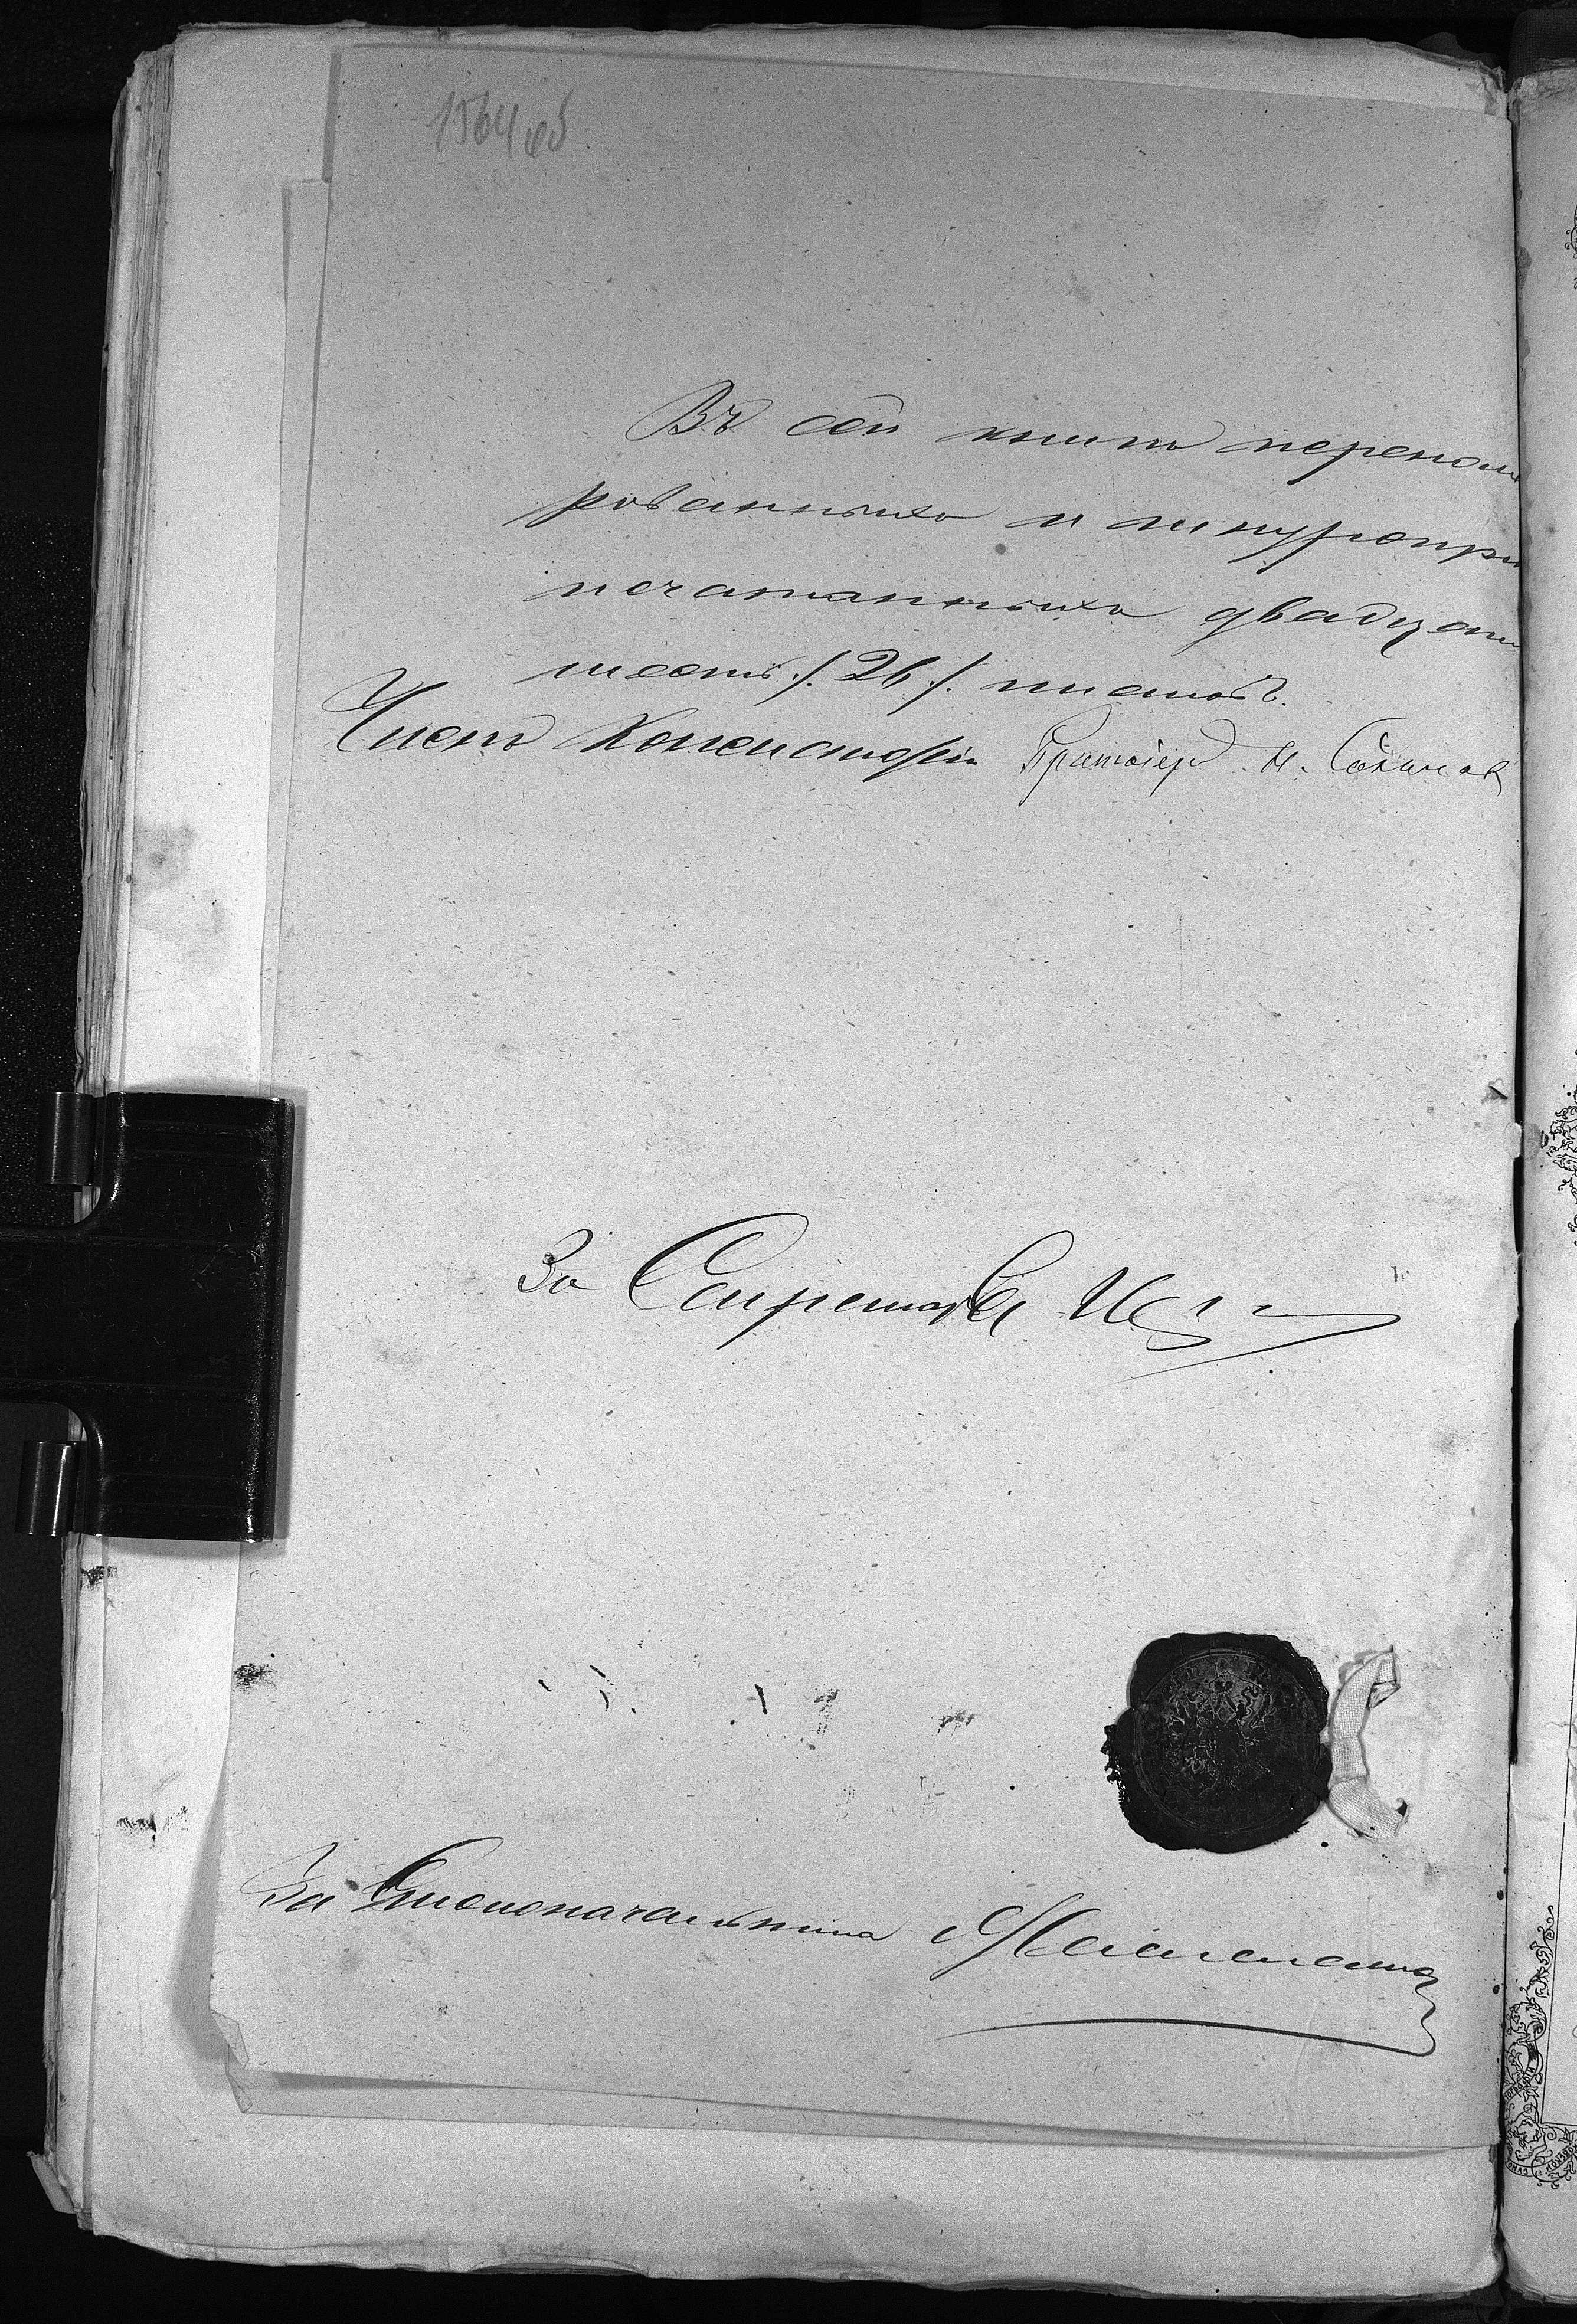 1564 об
Въ сей книгѣ перенуме
рованныхъ и шнуропри
печатанныхъ двадцать
шесть /. 26 /. листовъ.
Членъ Консисторіи Протоіер. Н.
За Секретаря
За Столоначальника